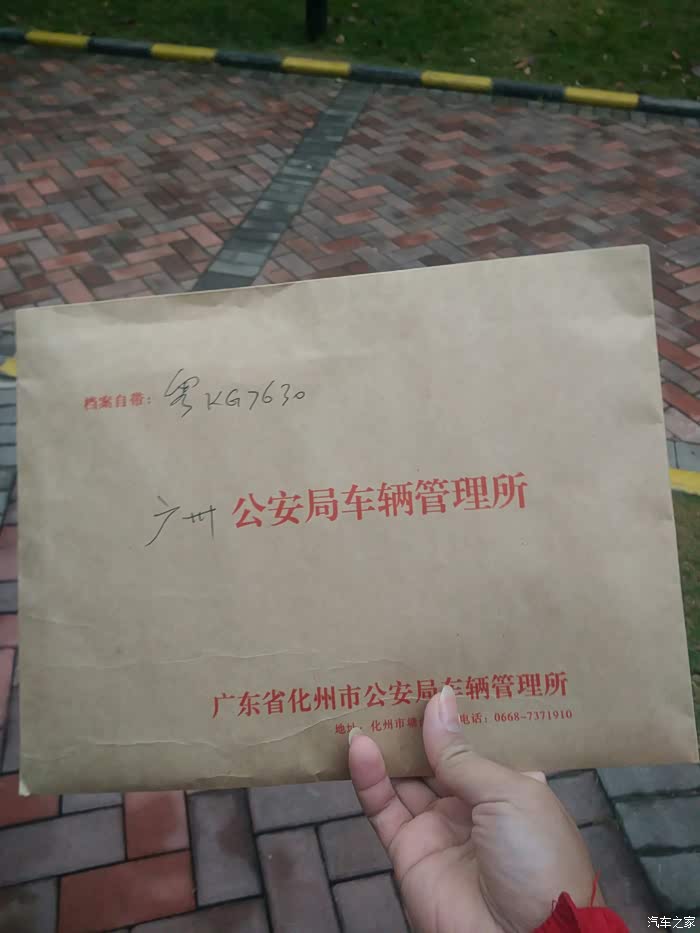 档案自带：粤KG7630
广州 公安局车辆管理所
广东省化州市公安局车辆管理所
地址：化州市 电话：0668-7371910
汽车之家